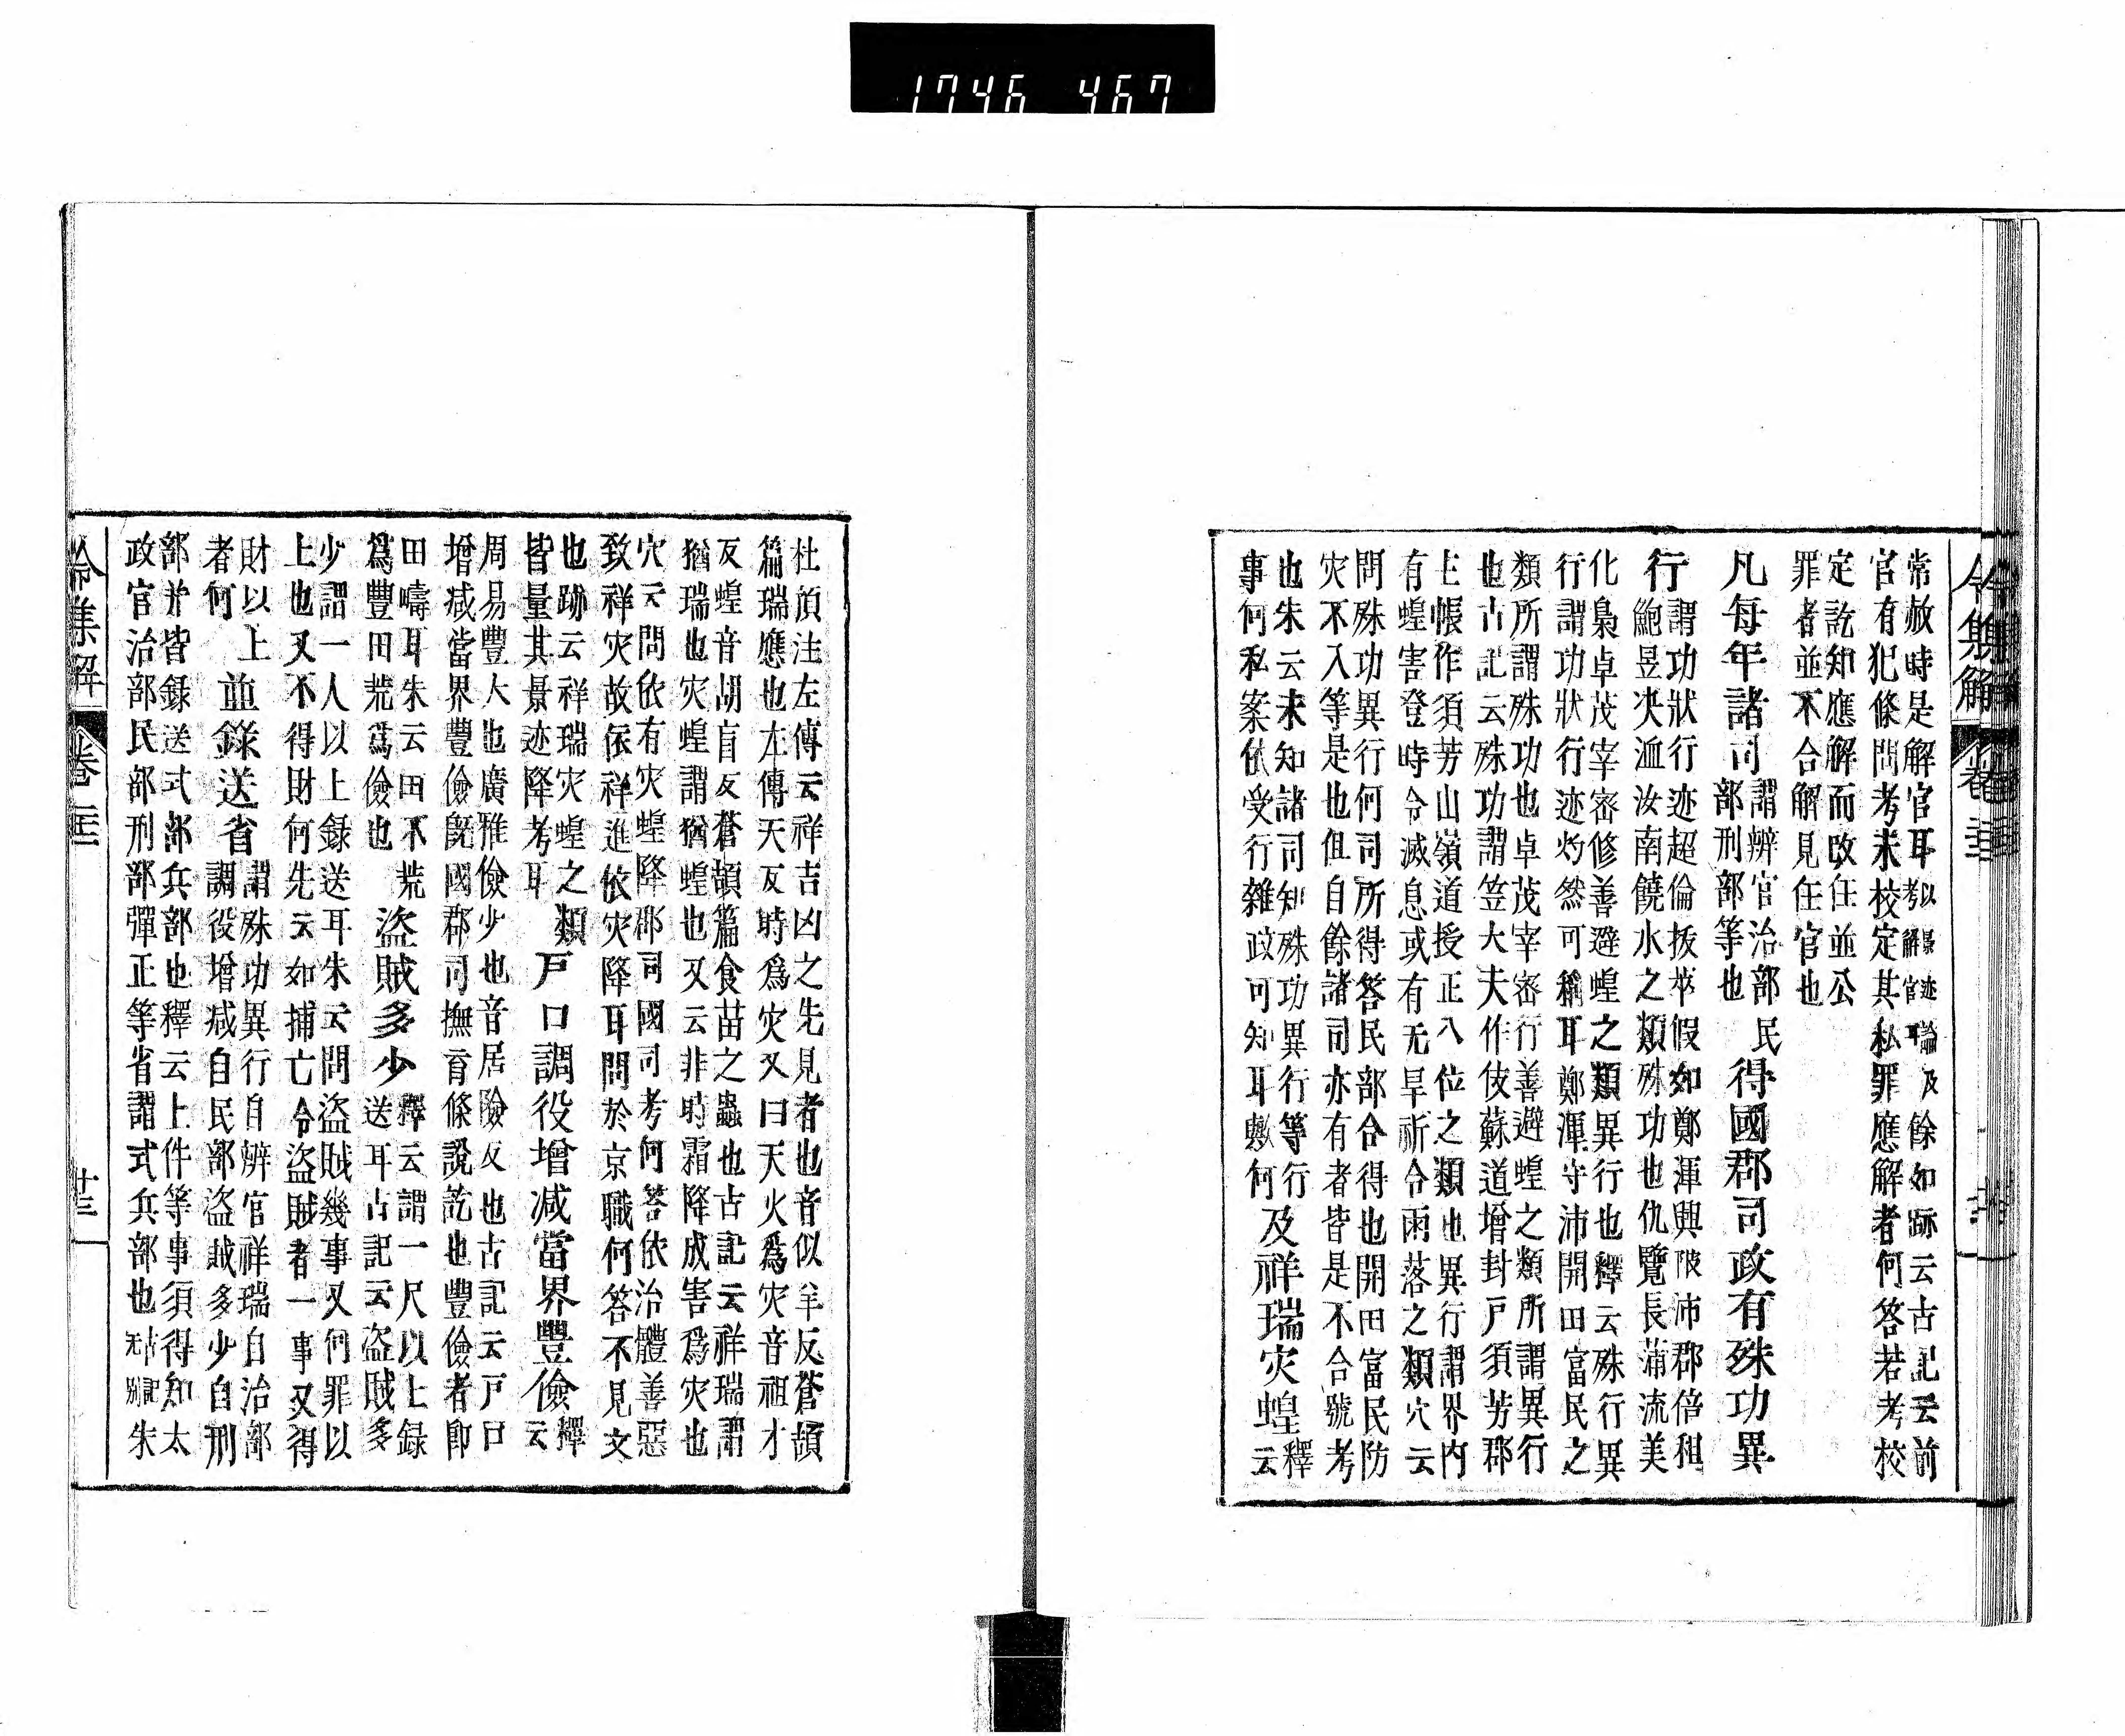 1746 467
令集解 卷二十二
常赦時是解官耳考以解官景迹耳論及餘如跡云古記云前
官有犯條問考未校定其私罪應解者何答若考校
定訖知應解而改任並公
罪者並不合解見任官也
凡每年諸司
謂辨官治部民
部刑部等也
得國郡司政有殊功異
行
謂功狀行迹超倫拔萃假如鄭渾興陂沛郡倍租
鮑昱決洫汝南饒水之類殊功也仇覽長蒲流美
化梟卓茂宰密修善避蝗之類異行也釋云殊行異
行謂功狀行迹灼然可稱耳鄭渾守沛開田富民之
類所謂殊功也卓茂宰密行善避蝗之類所謂異行
也古記云殊功謂笠大夫作伎蘇道增封戶須芳郡
主帳作須芳山嶺道授正八位之類也異行謂界內
有蝗害登時令滅息或有无旱祈令雨落之類穴云
問殊功異行何司所得答民部合得也開田富民防
灾不入等是也但自餘諸司亦有者皆是不合號考
也朱云未知諸司知殊功異行等行
事何私案依受行雜政可知耳歟何
及祥瑞灾蝗
釋
云
杜預注左傳云祥吉凶之先見者也音似羊反蒼頡
篇瑞應也左傳天反時爲灾又曰天火爲灾音祖才
反蝗音胡盲反蒼頡篇食苗之蟲也古記云祥瑞謂
猶瑞也灾蝗謂猶蝗也又云非時霜降成害爲灾也
穴云問依有灾蝗降郡司國司考何答依治體善惡
致祥灾故依祥進依灾降耳問於京職何答不見文
也跡云祥瑞灾蝗之類
皆量其景迹降考耳
戶口調役增减當界豐儉
釋
云
周易豐大也廣雅儉少也音居險反也古記云戶口
增减當界豐儉既國郡司撫育條說訖也豐儉者即
田疇耳朱云田不荒
爲豐田荒爲儉也
盜賊多少
釋云謂一尺以上錄
送耳古記云盜賊多
少謂一人以上錄送耳朱云問盜賊幾事又何罪以
上也又不得財何先云如捕亡令盜賊者一事又得
財以上
者何
並錄送省
謂殊功異行自辨官祥瑞自治部
調役增减自民部盜賊多少自刑
部并皆錄送式部兵部也釋云上件等事須得知太
政官治部民部刑部彈正等省謂式兵部也古記无別朱
令集解 卷二十二 廿三